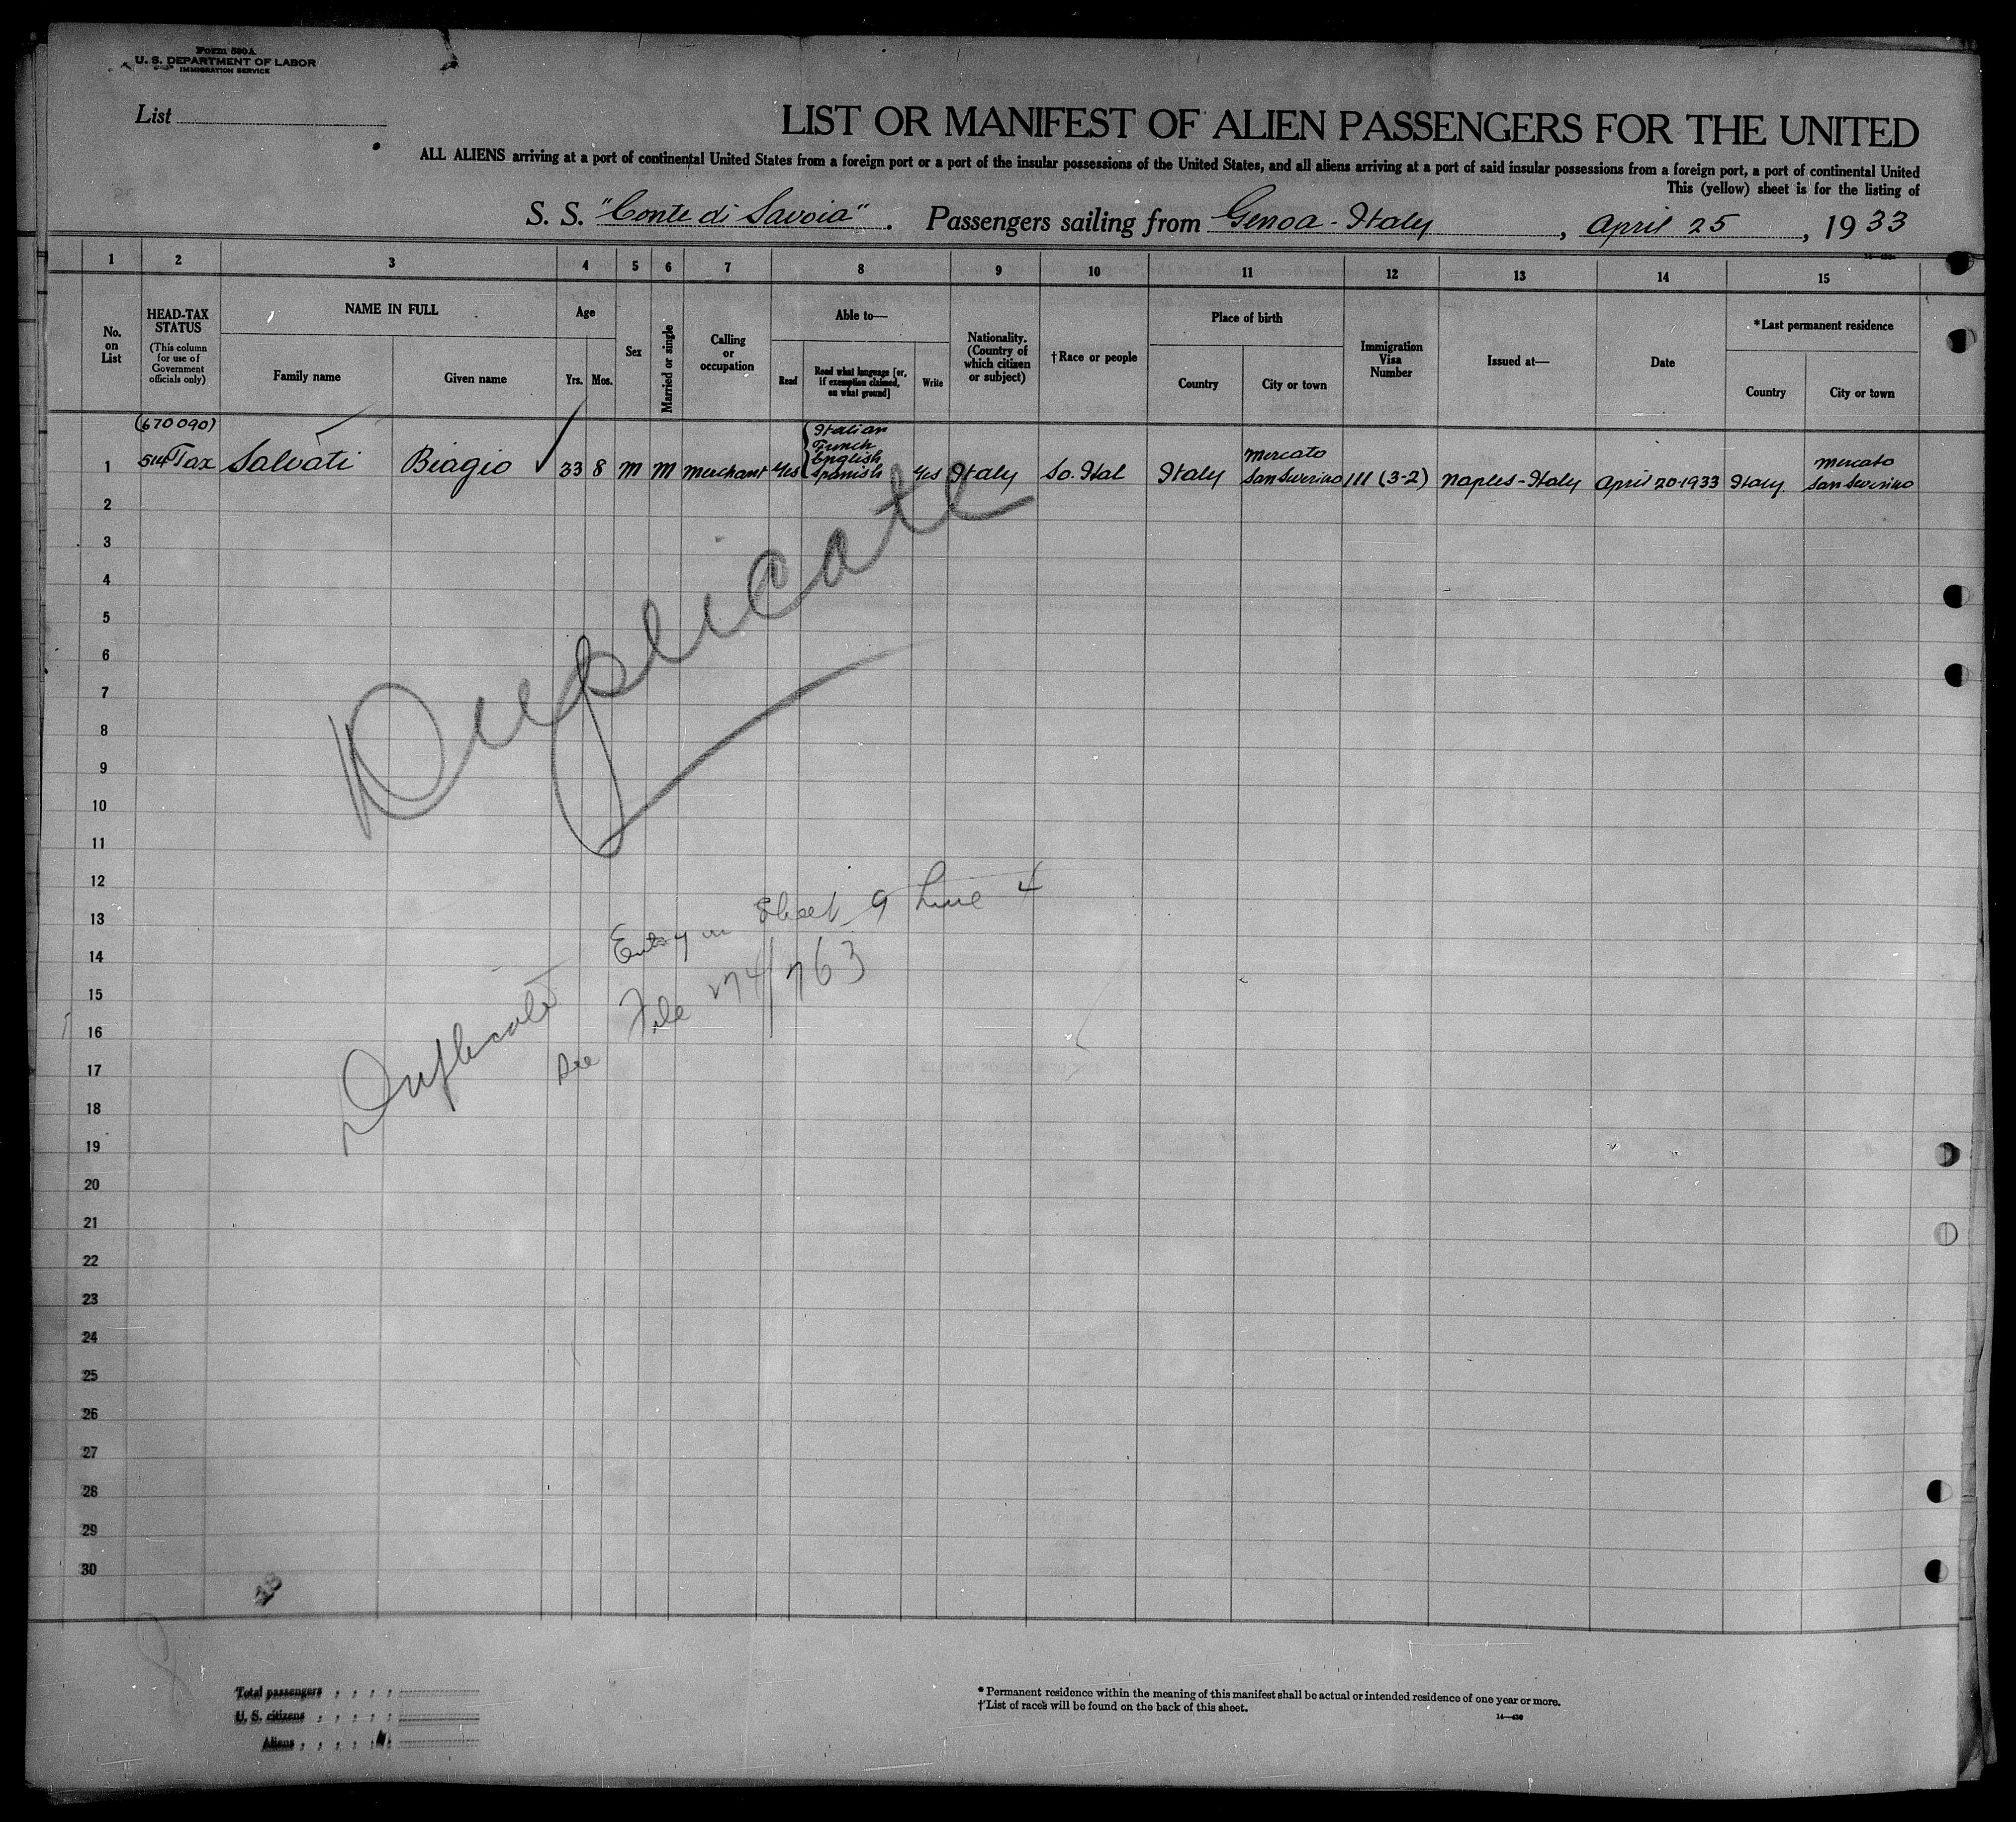 Form 500A
U. S. DEPARTMENT OF LABOR
IMMIGRATION SERVICE
List
LIST OR MANIFEST OF ALIEN PASSENGERS FOR THE UNITED
ALL ALIENS arriving at a port of continental United States from a foreign port or a port of the insular possessions of the United States, and all aliens arriving at a port of said insular possessions from a foreign port, a port of continental United
This (yellow) sheet is for the listing of
S. S. "Conte di Savoia". Passengers sailing from Genoa - Italy, April 25, 1933
1 2 3 4 5 6 7 8 9 10 11 12 13 14 15
No. on List
HEAD-TAX STATUS
(This column for use of Government officials only)
NAME IN FULL
Family name
Given name
Age
Yrs.
Mos.
Sex
Married or single
Calling or occupation
Able to—
Read
Read what language [or, if exemption claimed, on what ground]
Write
Nationality. (Country of which citizen or subject)
†Race or people
Place of birth
Country
City or town
Immigration Visa Number
Issued at—
Date
*Last permanent residence
Country
City or town
(670090)
1 Tax Salvati Biagio 33 8 M M Merchant Yes Italian French English Spanish Yes Italy So. Ital Italy Mercato San Severino 111 (3-2) Naples - Italy April 20-1933 Italy. Mercato San Severino
2
3
4
5
6
7
8
9
10
11
12
13
14
15
16
17
18
19
20
21
22
23
24
25
26
27
28
29
30
Duplicate
Duplicate Entry on Sheet 9 Line 4
See File
Total passengers
U. S. citizens
Aliens
* Permanent residence within the meaning of this manifest shall be actual or intended residence of one year or more.
† List of races will be found on the back of this sheet.
14—430